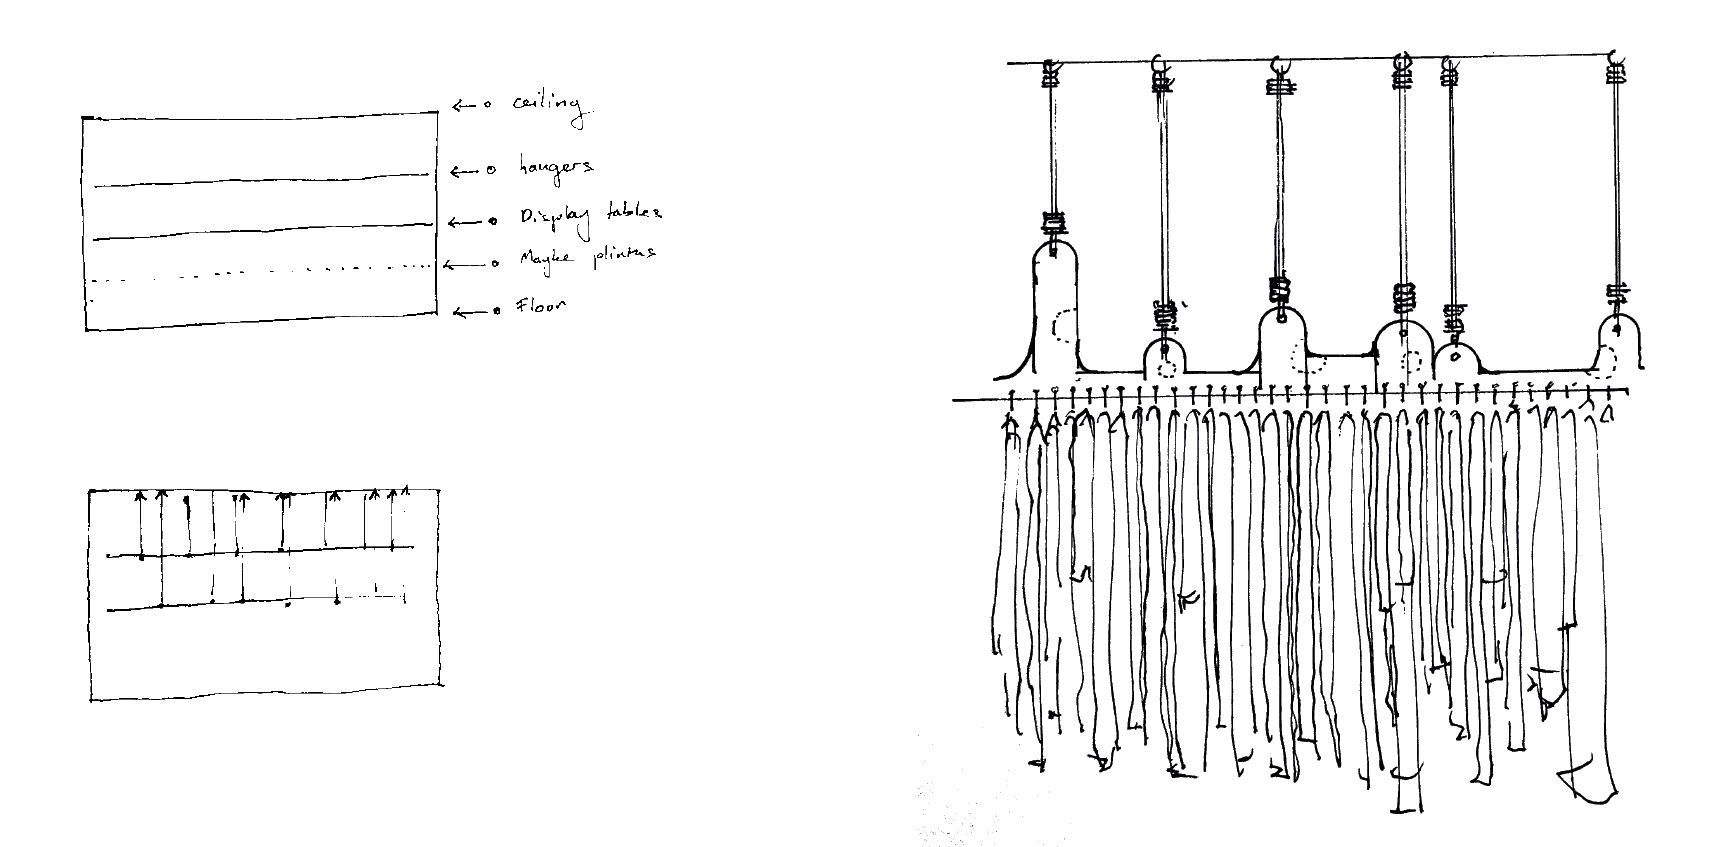 ceiling
hangers
Display tables
Maybe plinths
Floor